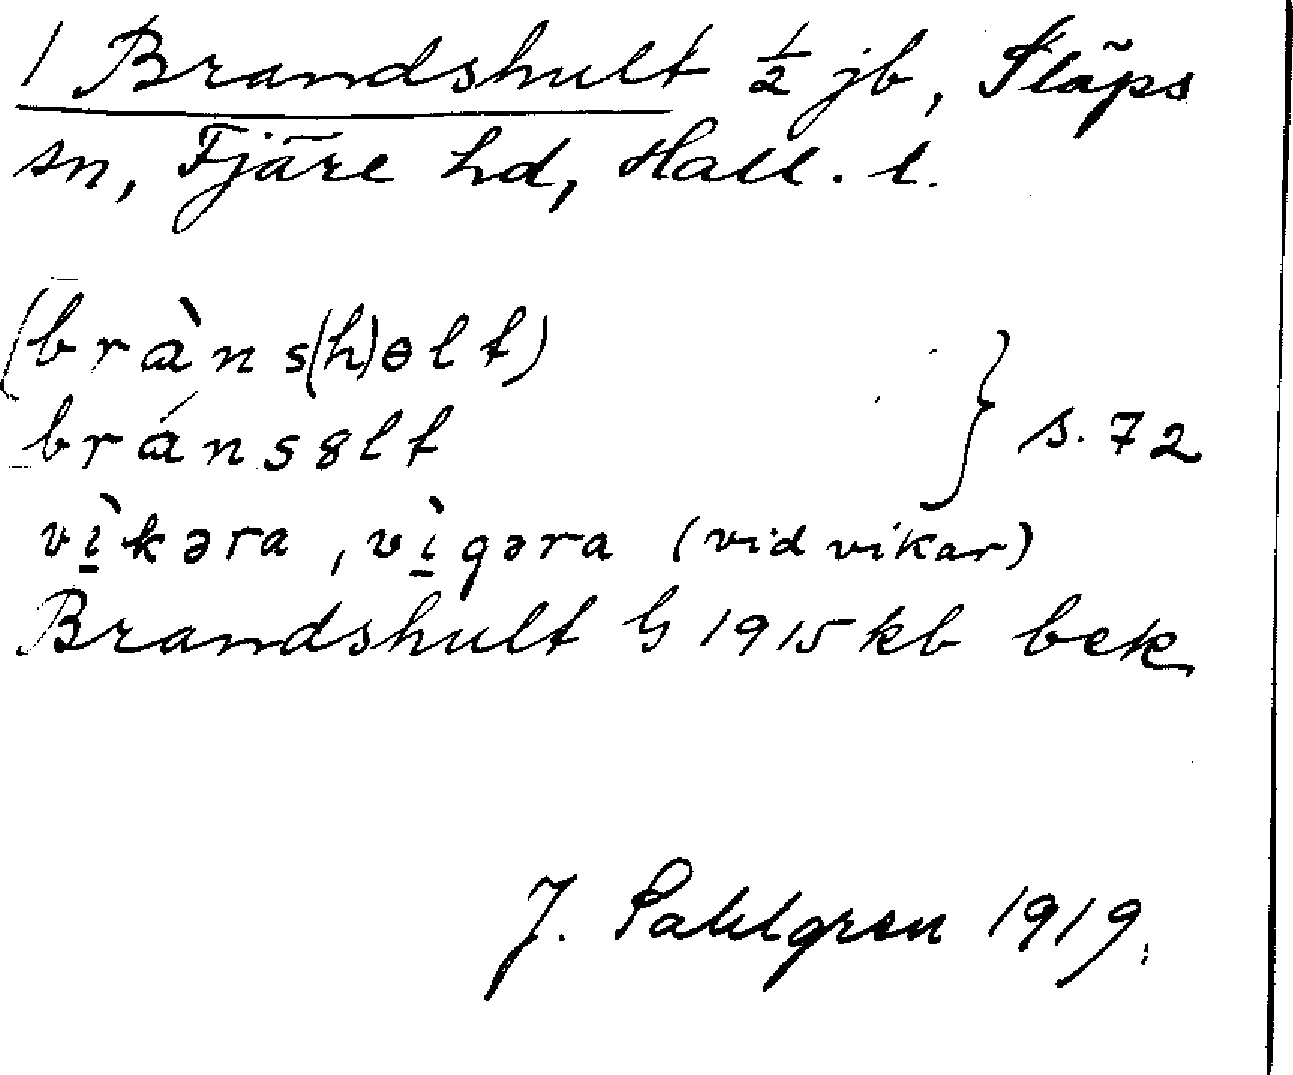 1 Brandshult ½ jb, Släps
sn, Fjäre hd, Hall. l.
(bràns(h)ɵlt)
bránsɞlt } s. 72
vì̱kəra, vì̱gəra (vid vikar)
Brandshult G 1915 kb bek
J. Sahlgren 1919.